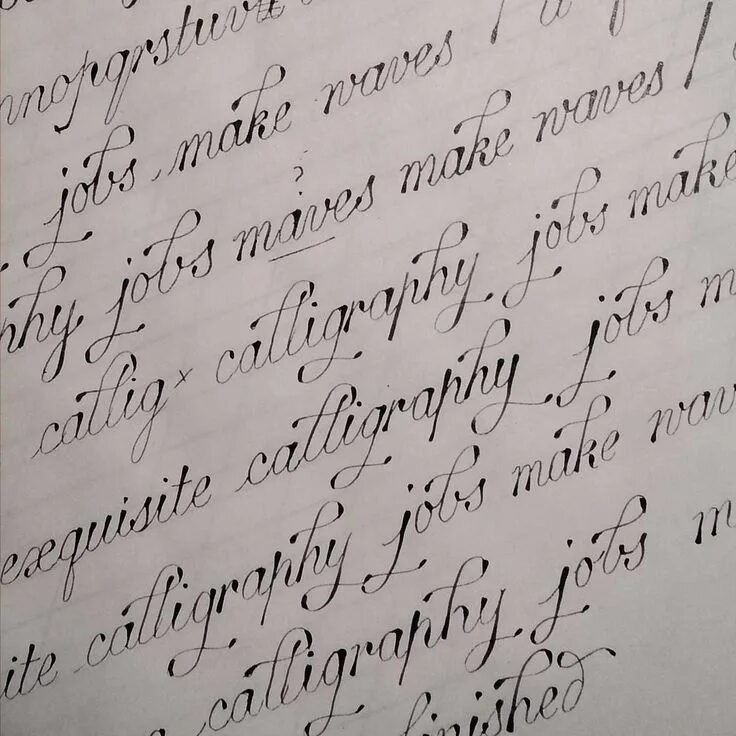 nnopqrstuv
jobs make waves /
? 
phy jobs maves make waves /
callig x calligraphy jobs make
exquisite calligraphy jobs m
ite calligraphy jobs make wav
calligraphy jobs m
finished